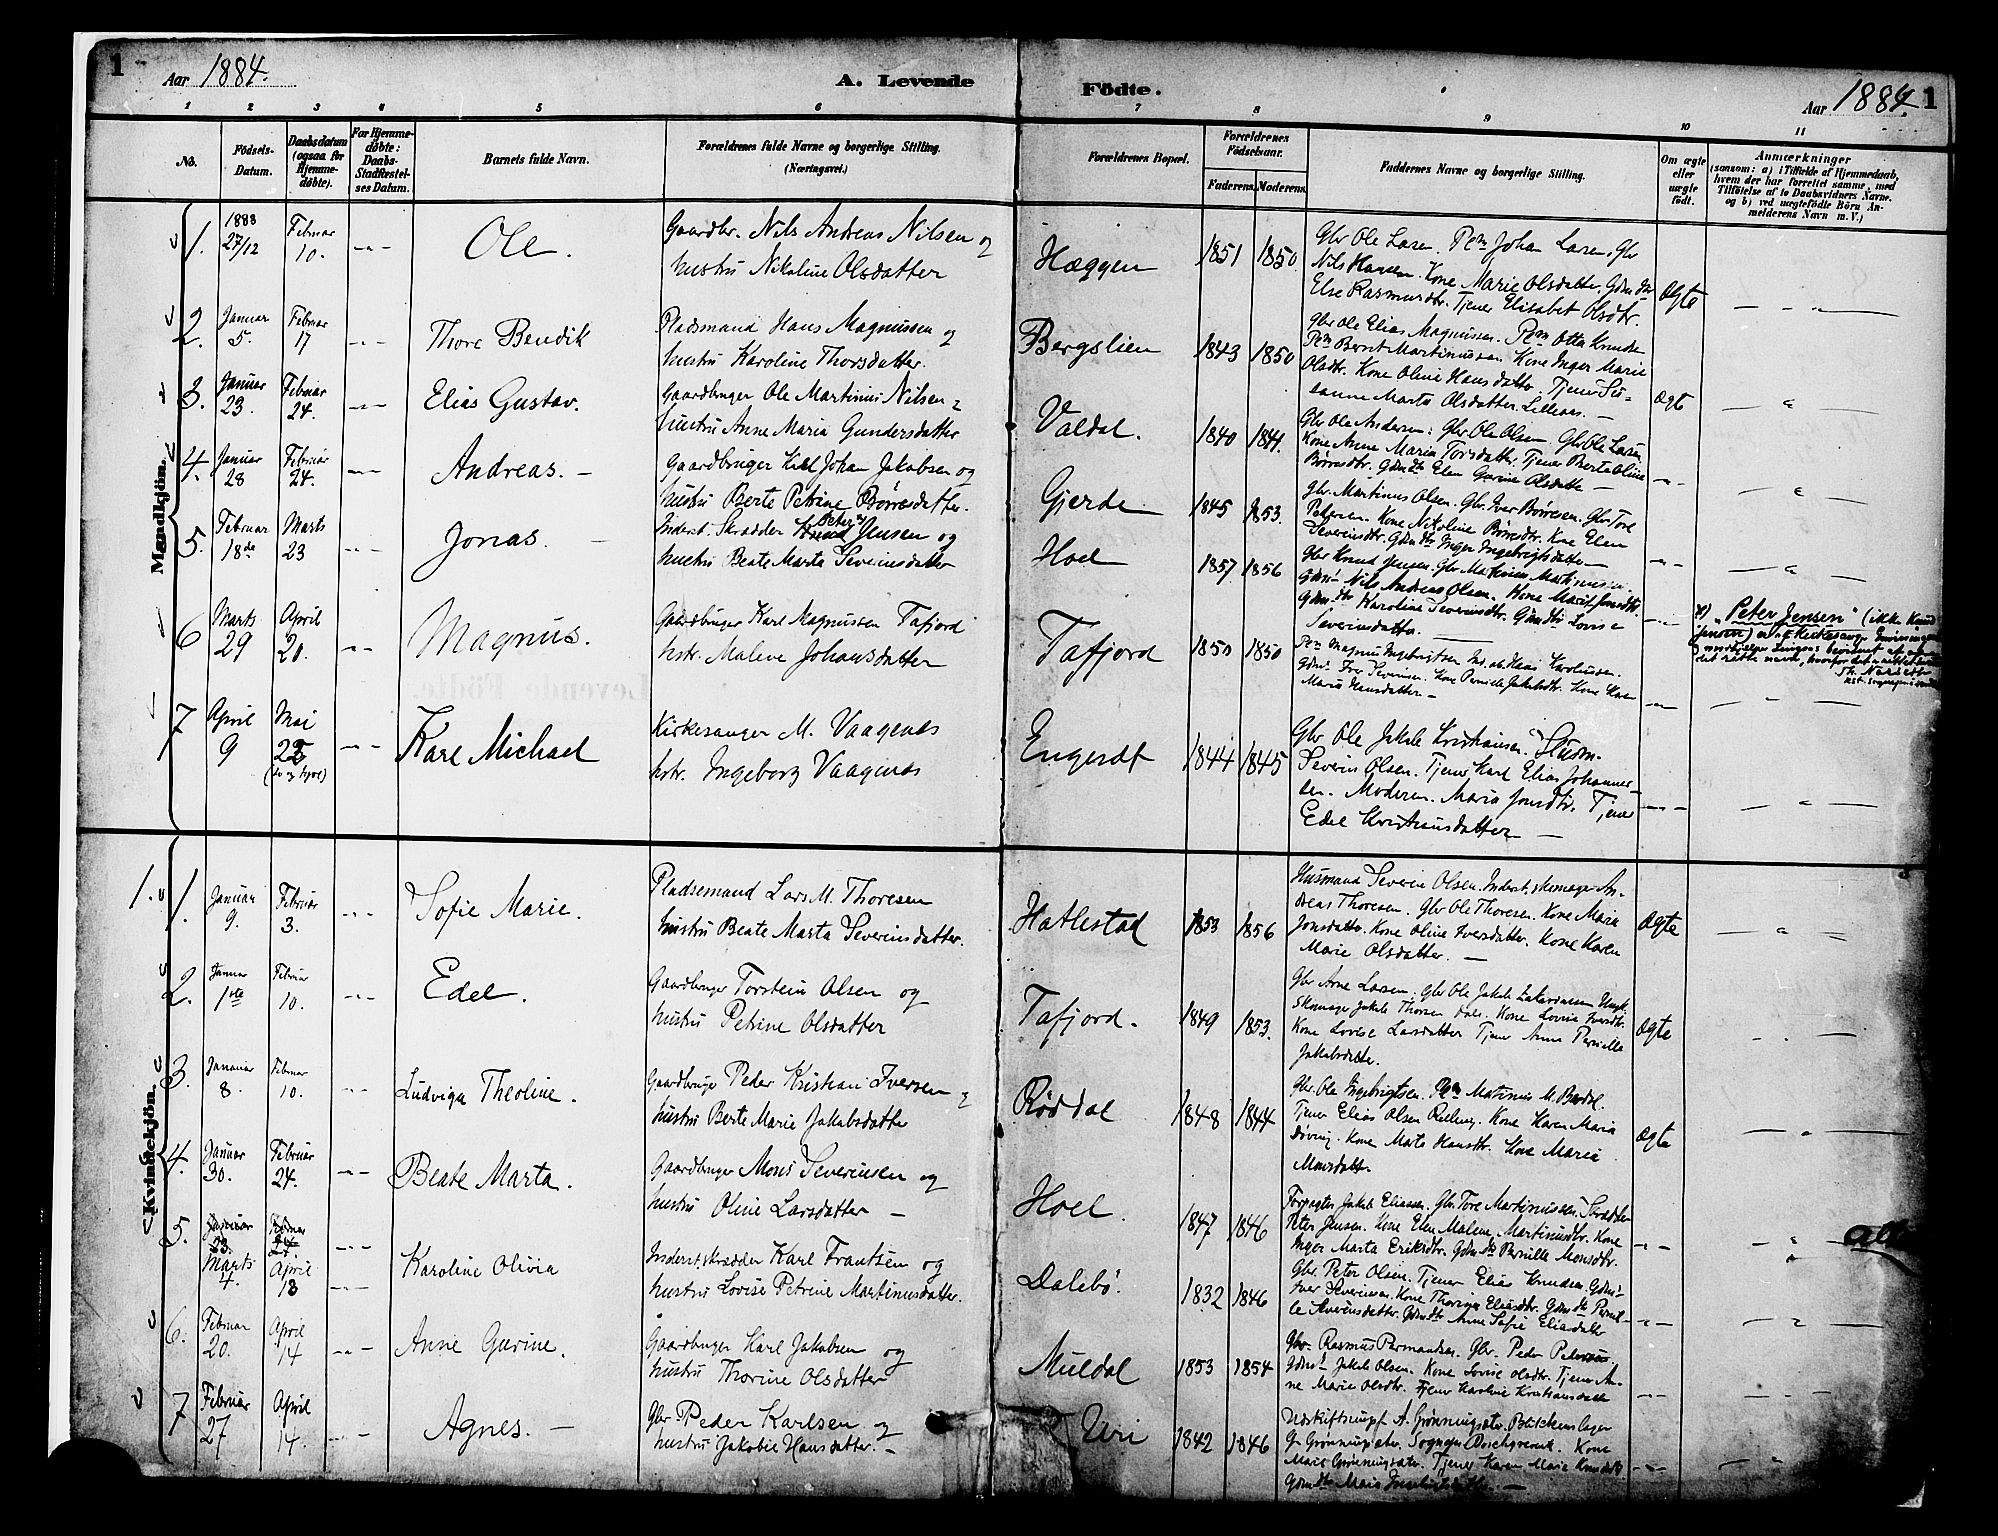 1
Aar 1884.
A. Levende
Födte.
Aar 1884
1
1 2 3 4 5 6 7 8 9 10 11
No.
Födsels-
Datum.
Daabsdatum
(ogsaa for
Hjemme-
döbte).
For Hjemme-
döbte:
Daabs-
Stadfæstel-
ses Datum.
Barnets fulde Navn.
Forældrenes fulde Navne og borgerlige Stilling.
(Næringsvei.)
Forældrenes Bopæl.
Forældrenes
Födselsaar.
Faderens. Moderens.
Faddernes Navne og borgerlige Stilling.
Om ægte
eller
uægte
födt.
Anmærkninger
(saasom: a) i Tilfælde af Hjemmedaab,
hvem der har forrettet samme, med
Tilföielse af to Daabsvidners Navne.
og b) ved uægtefödte Börn An-
melderens Navn m. V.)
Mandkjön.
1. 1883 27/12 Februar 10. Ole.
Gaardbr. Nils Andreas Nilsen og
hustru Nikoline Olsdatter
Hæggen 1851 1850.
Gbr Ole Larsen. Pem Johan Larsen. Gbr
Nils Hansen. Kone Marie Olsdatter.
Else Rasmusdtr. Tjener Elisabet Olsdtr.
Ægte
2. Januar 5. Februar 17 Thore Bendik
Pladsmand Hans Magnussen og
hustru Karoline Thorsdatter.
Bergslien 1843 1850
Gbr Ole Elias Magnussen. Pem Otta Knudsen
Pem Bernt Martinussen. Kone Inger Marie
Olsdtr. Kone Oline Hansdatter. Tjener Su-
sanne Marta Olsdatter Lilleaas. —
Ægte
3. Januar 23. Februar 24. Elias Gustav.
Gaardbruger Ole Martinus Nilsen og
hustru Anne Maria Gundersdatter
Valdal. 1840 1841.
Gbr Ole Andersen: Gbr Ole Olsen. Gbr Ole Larsen
Kone Anne Maria Torsdatter. Tjener Berte Oline
Börresdtr. Gdm dtr Elen Gurine Olsdatte —
4. Januar 28 Februar 24. Andreas. —
Gaardbruger Karl Johan Jakobsen og
hustru Berte Petrine Börresdatter.
Gjerde 1845 1853.
Gbr. Martinus Olsen. Gbr Iver Börresen. Gbr Tore
Petersen. Kone Nikoline Börresdtr. Kone Elen
Severinsdtr. Gdm dtr Inger Ingebrigtsdatter —
5. Februar 18de Marts 23 Jonas. —
Inderst. Skrædder Knud Peter x) Jensen og
hustru Beate Marta Severinsdatter
Hoel 1857 1856
Gbr Knud Jensen. Gbr Martinus Martinussen.
Gdms. Nils Andreas Olsen. Kone Marit Jonsdtr.
Gdm. dtr Karoline Severinsdtr. Gdm dtr Lovise
Severinsdatter. —
x) „Peter Jensen" (ikke Knud
Jensen)
6 Marts 29 April 20. Magnus.
Gaardbruger Karl Magnussen Tafjord
hstr. Malene Johansdatter
Tafjord 1850 1850
Pem Magnus Ingebrigtsen Karolussen.
Gdms. Iver Severinsen. Kone Pernille Jakobsdtr. Kone Karen
Maria Hansdatter. —
7 April 9 Mai 22 Karl Michael
Kirkesanger M. Vaagenes
hstr. Ingeborg Vaagenes
Engeset 1844 1845
Gbr Ole Jakob Kristiansen. Husm.
Severin Olsen. Tjener Karl Elias Johannes-
sen. Moderen. Maria Jonsdtr. Tjener
Edel Kristiansdatter —
Kvindekjön.
1. 1. Januar 9. Februar 3. Sofie Marie.
Pladsemand Lars M. Thoresen
hustru Beate Marta Severinsdatter.
Hatlestad 1853 1856
Husmand Severin Olsen. Inderst. skomager An-
dreas Thoresen. Gbr Ole Thoresen. Kone Maria
Jonsdatter. Kone Oline Iversdatter. Kone Karen
Marie Olsdatter. —
Ægte
2. Januar 1ste Februar 10. Edel.
Gaardbruger Torstein Olsen og
hustru Petrine Olsdatter
Tafjord. 1849 1853.
Gbr Arne Larsen. Gbr Ole Jakob Zakariassen
Skomager Jakob Thoresen Dale. Kone Lovise Iversdtr.
Kone Lovise Larsdatter Tjener Anne Pernille
Jakobsdatter.
Ægte
3. Januar 8. Februar 10. Ludviga Theoline.
Gaardbruger Peder Kristian Iversen og
hustru Berte Marie Jakobsdatter
Röddal 1848 1844
Gbr. Ole Ingebrigtsen. Pem Matinus M. Berdal.
Tjener Elias Olsen Relling. Kone Karen Maria
Döving. Kone Marte Hansdtr. Kone Maria
Monsdatter.
Ægte
4. Januar 30. Februar 24. Beate Marta.
Gaardbruger Mons Severinsen og
hustru Oline Larsdatter —
Hoel. 1847 1846
Forpagter Jakob Eliassen. Gbr Tore Martinussen. Skrædder
Peter Jensen. Kone Elen Malene Martinusdtr. Kone
Inger Marta Eriksdtr. Gdm dtr Pernille Monsdtr.
5. Januar 23. Februar 24 Marts 4. April 13 Karoline Olivia
Inderst. skrædder Karl Frantsen og
hustru Lovise Petrine Martinusdatter.
Dalebö. 1832 1846
Gbr. Peter Olsen. Tjener Elias Knudsen. Gdms.
Iver Severinsen. Kone Thorine Eliasdtr. Gdm dtr Pernil-
le Severinsdatter. Gdm dtr Anne Sofie Eliasdatter
6. Februar 20. April 14 Anne Gurine.
Gaardbruger Karl Jakobsen og
hustru Thorine Olsdatter
Muldal 1853 1854
Gbr. Rasmus Permandsen. Gbr. Peder Petersen
Gdms. Jakob Olsen. Kone Lovise Olsdtr. Tjener An-
ne Marie Olsdtr. Tjener Karline Kristiansdatter
7 Februar 27 April 14. Agnes. —
Gbr Peder Karlsen og
hustru Jakobie Hansdatter. —
Uri 1842 1846
Udskiftnmpf. A. Grönningsæter.
Marie Grönningsæter. Tjener Karen Marie Knudsdtr
Gdm dtr Maria Ingebrigtsdatter. —